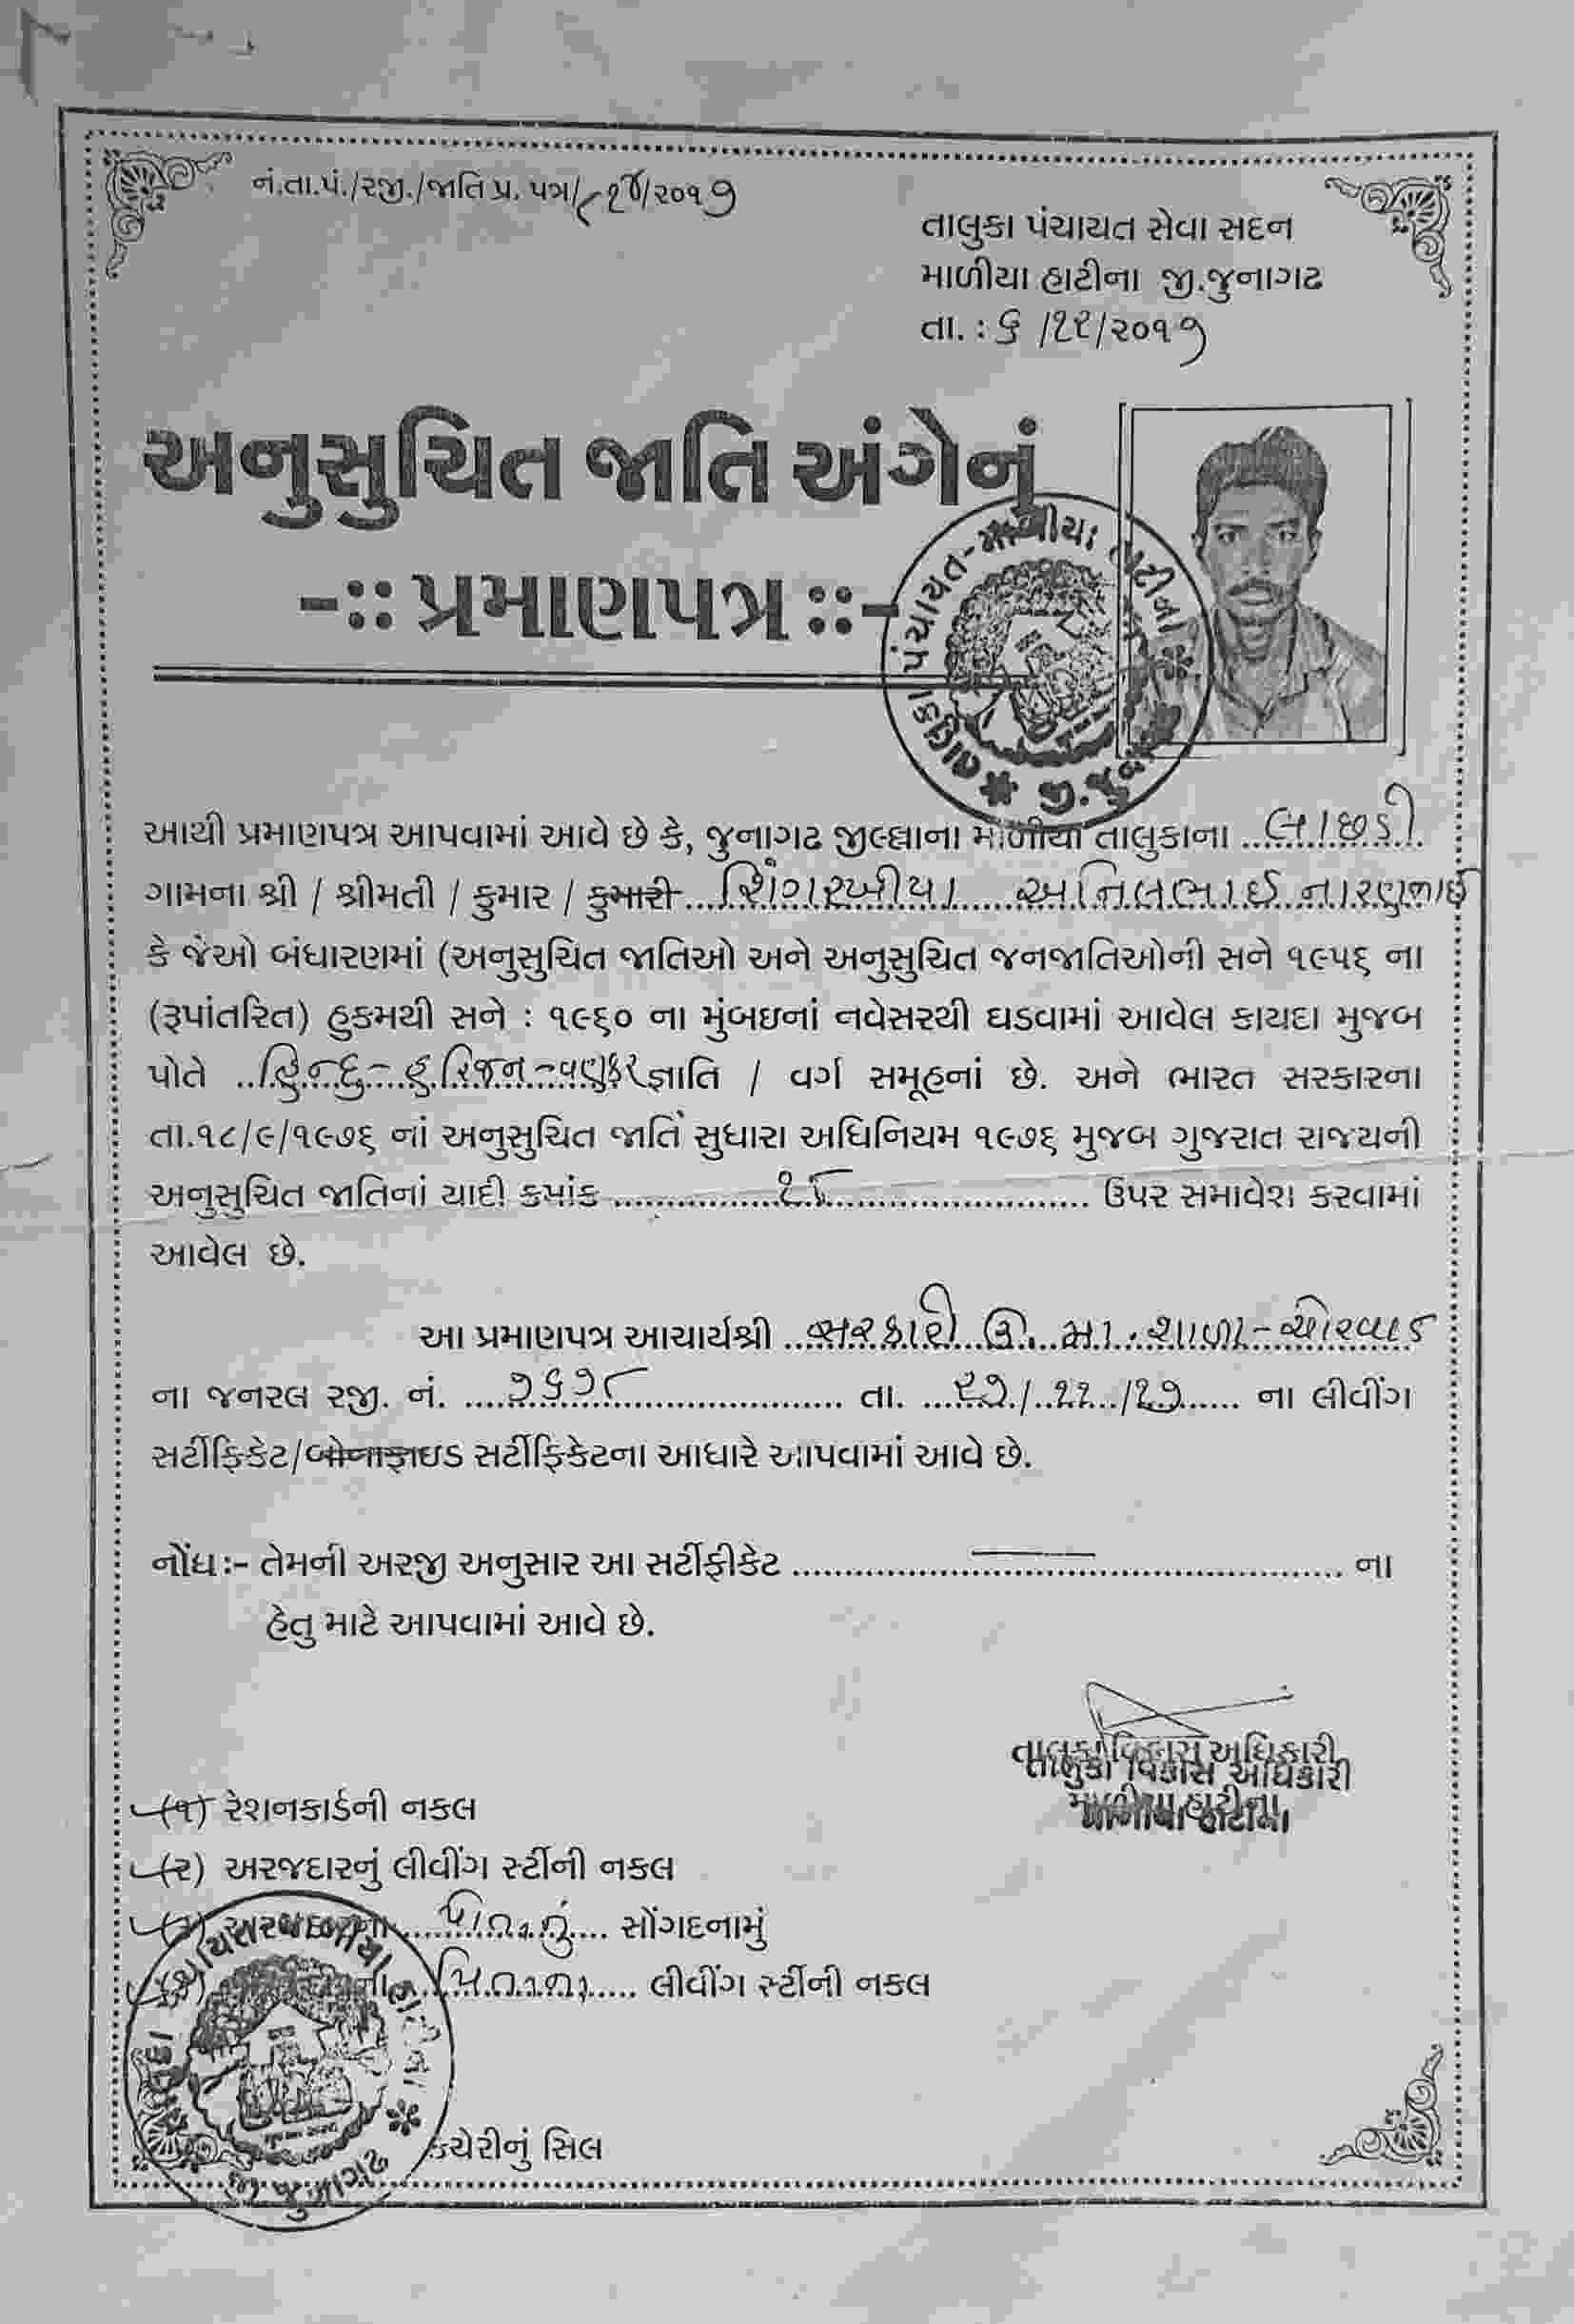 નં.તા.પં./રજી./જાતિ પ્ર. પત્ર/ ૧૪/૨૦૧૭
તાલુકા પંચાયત સેવા સદન
માળીયા હાટીના જી.જુનાગઢ
તા. : ૬ /૧૨/૨૦૧૭
અનુસુચિત જાતિ અંગેનું
-:: પ્રમાણપત્ર ::-
આથી પ્રમાણપત્ર આપવામાં આવે છે કે, જુનાગઢ જીલ્લાના માળીયા તાલુકાના .. લાછડી
ગામના શ્રી / શ્રીમતી / કુમાર / કુમારી .. શિંગરખીયા .. અનિલભાઈ નારણભાઈ
કે જેઓ બંધારણમાં (અનુસુચિત જાતિઓ અને અનુસુચિત જનજાતિઓની સને ૧૯૫૬ ના
(રૂપાંતરિત) હુકમથી સને : ૧૯૬૦ ના મુંબઇનાં નવેસરથી ઘડવામાં આવેલ કાયદા મુજબ
પોતે .. હિન્દુ - હરિજન - વણકર જ્ઞાતિ / વર્ગ સમૂહનાં છે. અને ભારત સરકારના
તા.૧૮/૯/૧૯૭૬ નાં અનુસુચિત જાતિ સુધારા અધિનિયમ ૧૯૭૬ મુજબ ગુજરાત રાજ્યની
અનુસુચિત જાતિનાં યાદી ક્માંક .......... ઉપર સમાવેશ કરવામાં
આવેલ છે.
આ પ્રમાણપત્ર આચાર્યશ્રી .. સરકારી ઉ. મા. શાળા - ચોરવાડ
ના જનરલ રજી. નં. .... ૭૬૭૮ .......... તા. .. ૨૭/ ૧૧ /૧૭ .. ના લીવીંગ
સર્ટીફિકેટ/બોનાફાઇડ સર્ટીફિકેટના આધારે આપવામાં આવે છે.
નોંધ :- તેમની અરજી અનુસાર આ સર્ટીફીકેટ .......... — .......... ના
હેતુ માટે આપવામાં આવે છે.
તાલુકા વિકાસ અધિકારી
માળીયા હાટીના
(૧) રેશનકાર્ડની નકલ
(૨) અરજદારનું લીવીંગ સ્ર્ટીની નકલ
(૩) અરજદારના .. પિતાનું .. સોંગદનામું
(૪) .. પિતાના .. લીવીંગ સ્ર્ટીની નકલ
કચેરીનું સિલ